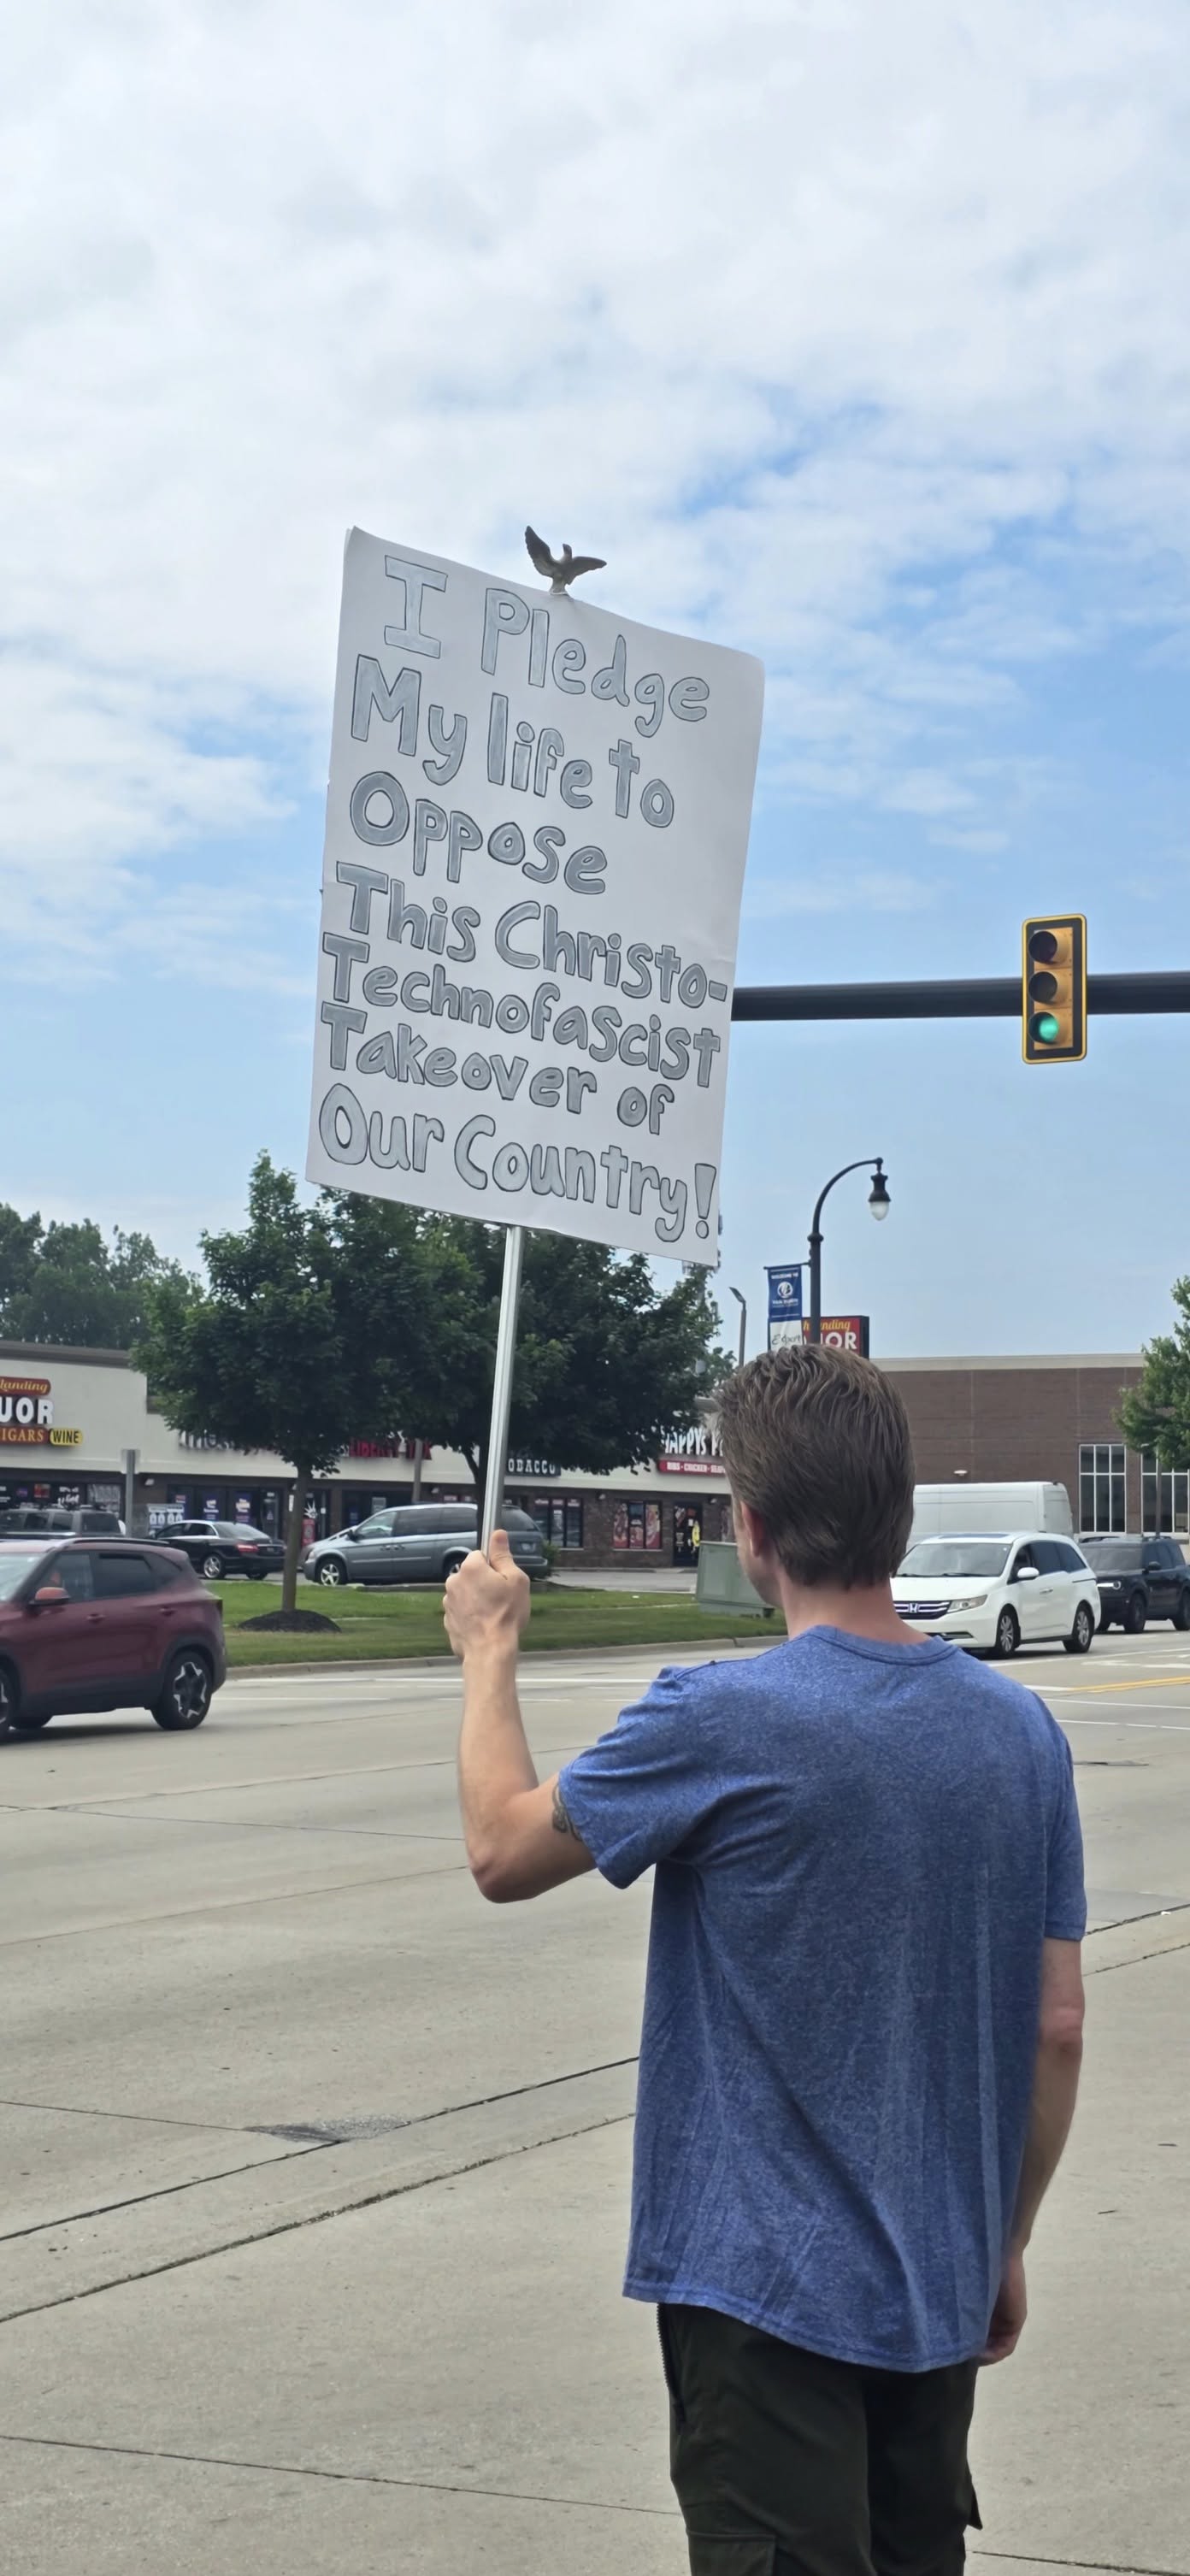 I Pledge
My life to
Oppose
This Christo-
Technofascist
Takeover of
Our Country!
WELCOME TO
anding
UOR
IGARS WINE
LIBERTY
OBACCO
APPY'S
nding
UOR